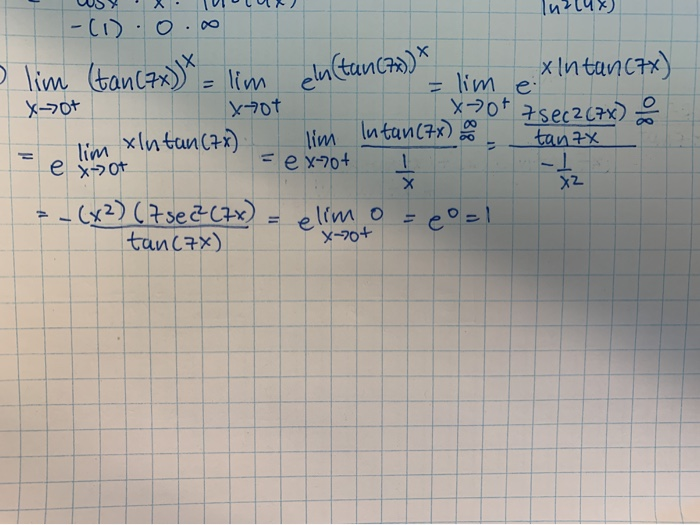 -(1) · 0 · ∞
lim (tan(7x))^x = lim e^ln(tan(7x))^x = lim e^x ln tan(7x)
x→0+ x→0+ x→0+
= e^lim x→0+ x ln tan(7x) = e^lim x→0+ ln tan(7x) / (1/x) ∞/∞ = (7 sec2(7x) / tan 7x) / (-1/x2) 0/∞
= -(x2)(7 sec2(7x) / tan(7x) = e^lim x→0+ 0 = e^0 = 1